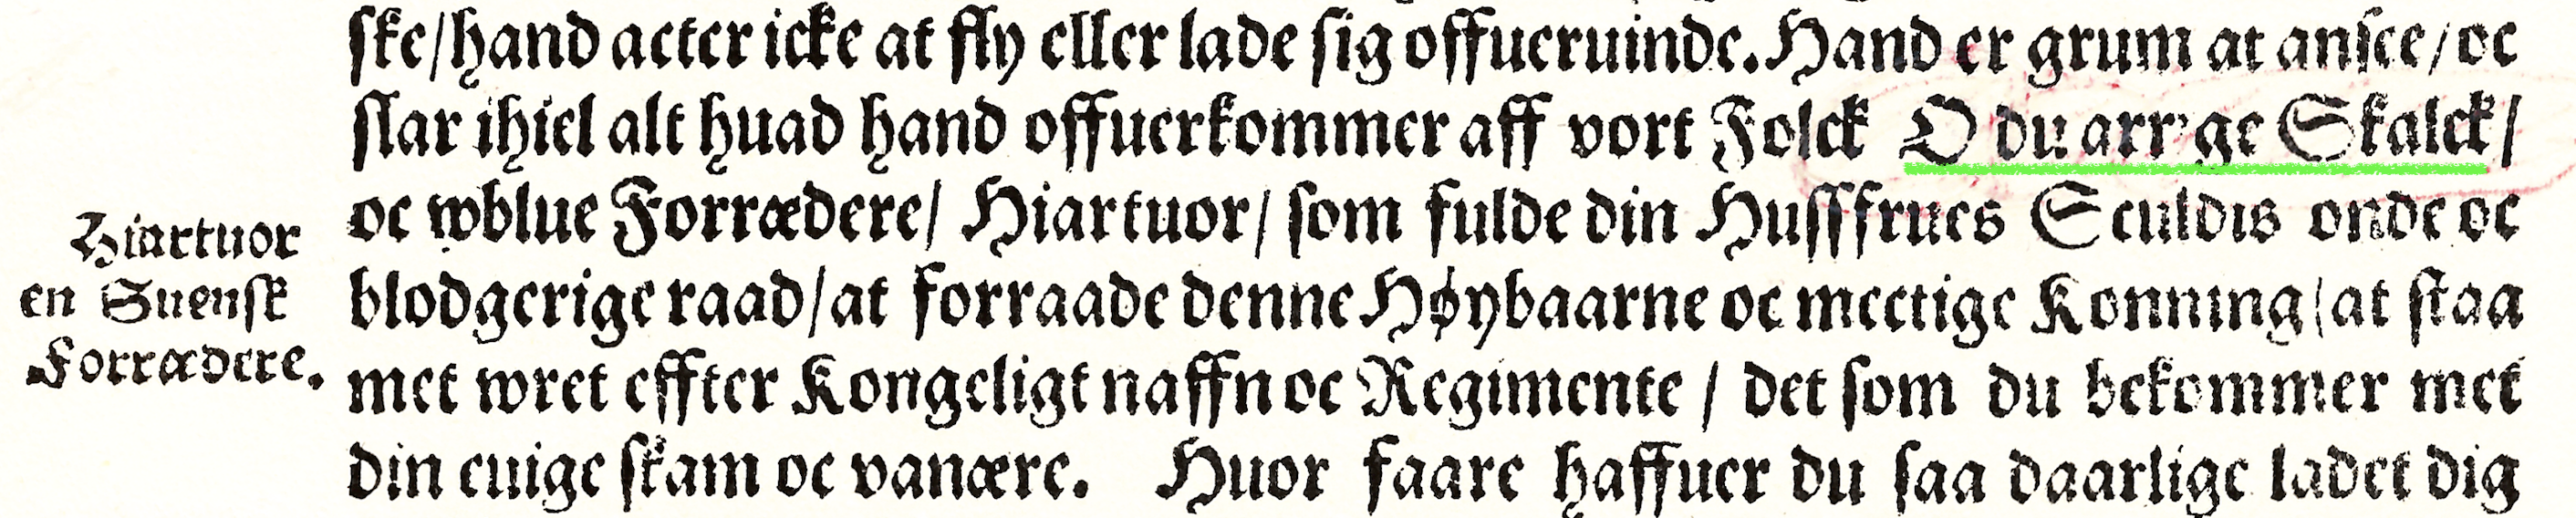 ske/hand acter icke at fly eller lade sig offueruinde. Hand er grum at ansee/oc
slar ihiel alt huad hand offuerkommer aff vort Folck O du arrige Skalck/
oc wblue Forrædere/ Hiartuor/ som fulde din Husffrues Sculdis onde oc
blodgerige raad/at forraade denne Høybaarne oc mectige Konning/at staa
met wret effter Kongeligt naffn oc Regimente / det som du bekommer met
din euige skam oc vanære. Huor faare haffuer du saa daarlige ladet dig
Hiartuor
en Suensk
Forrædere.